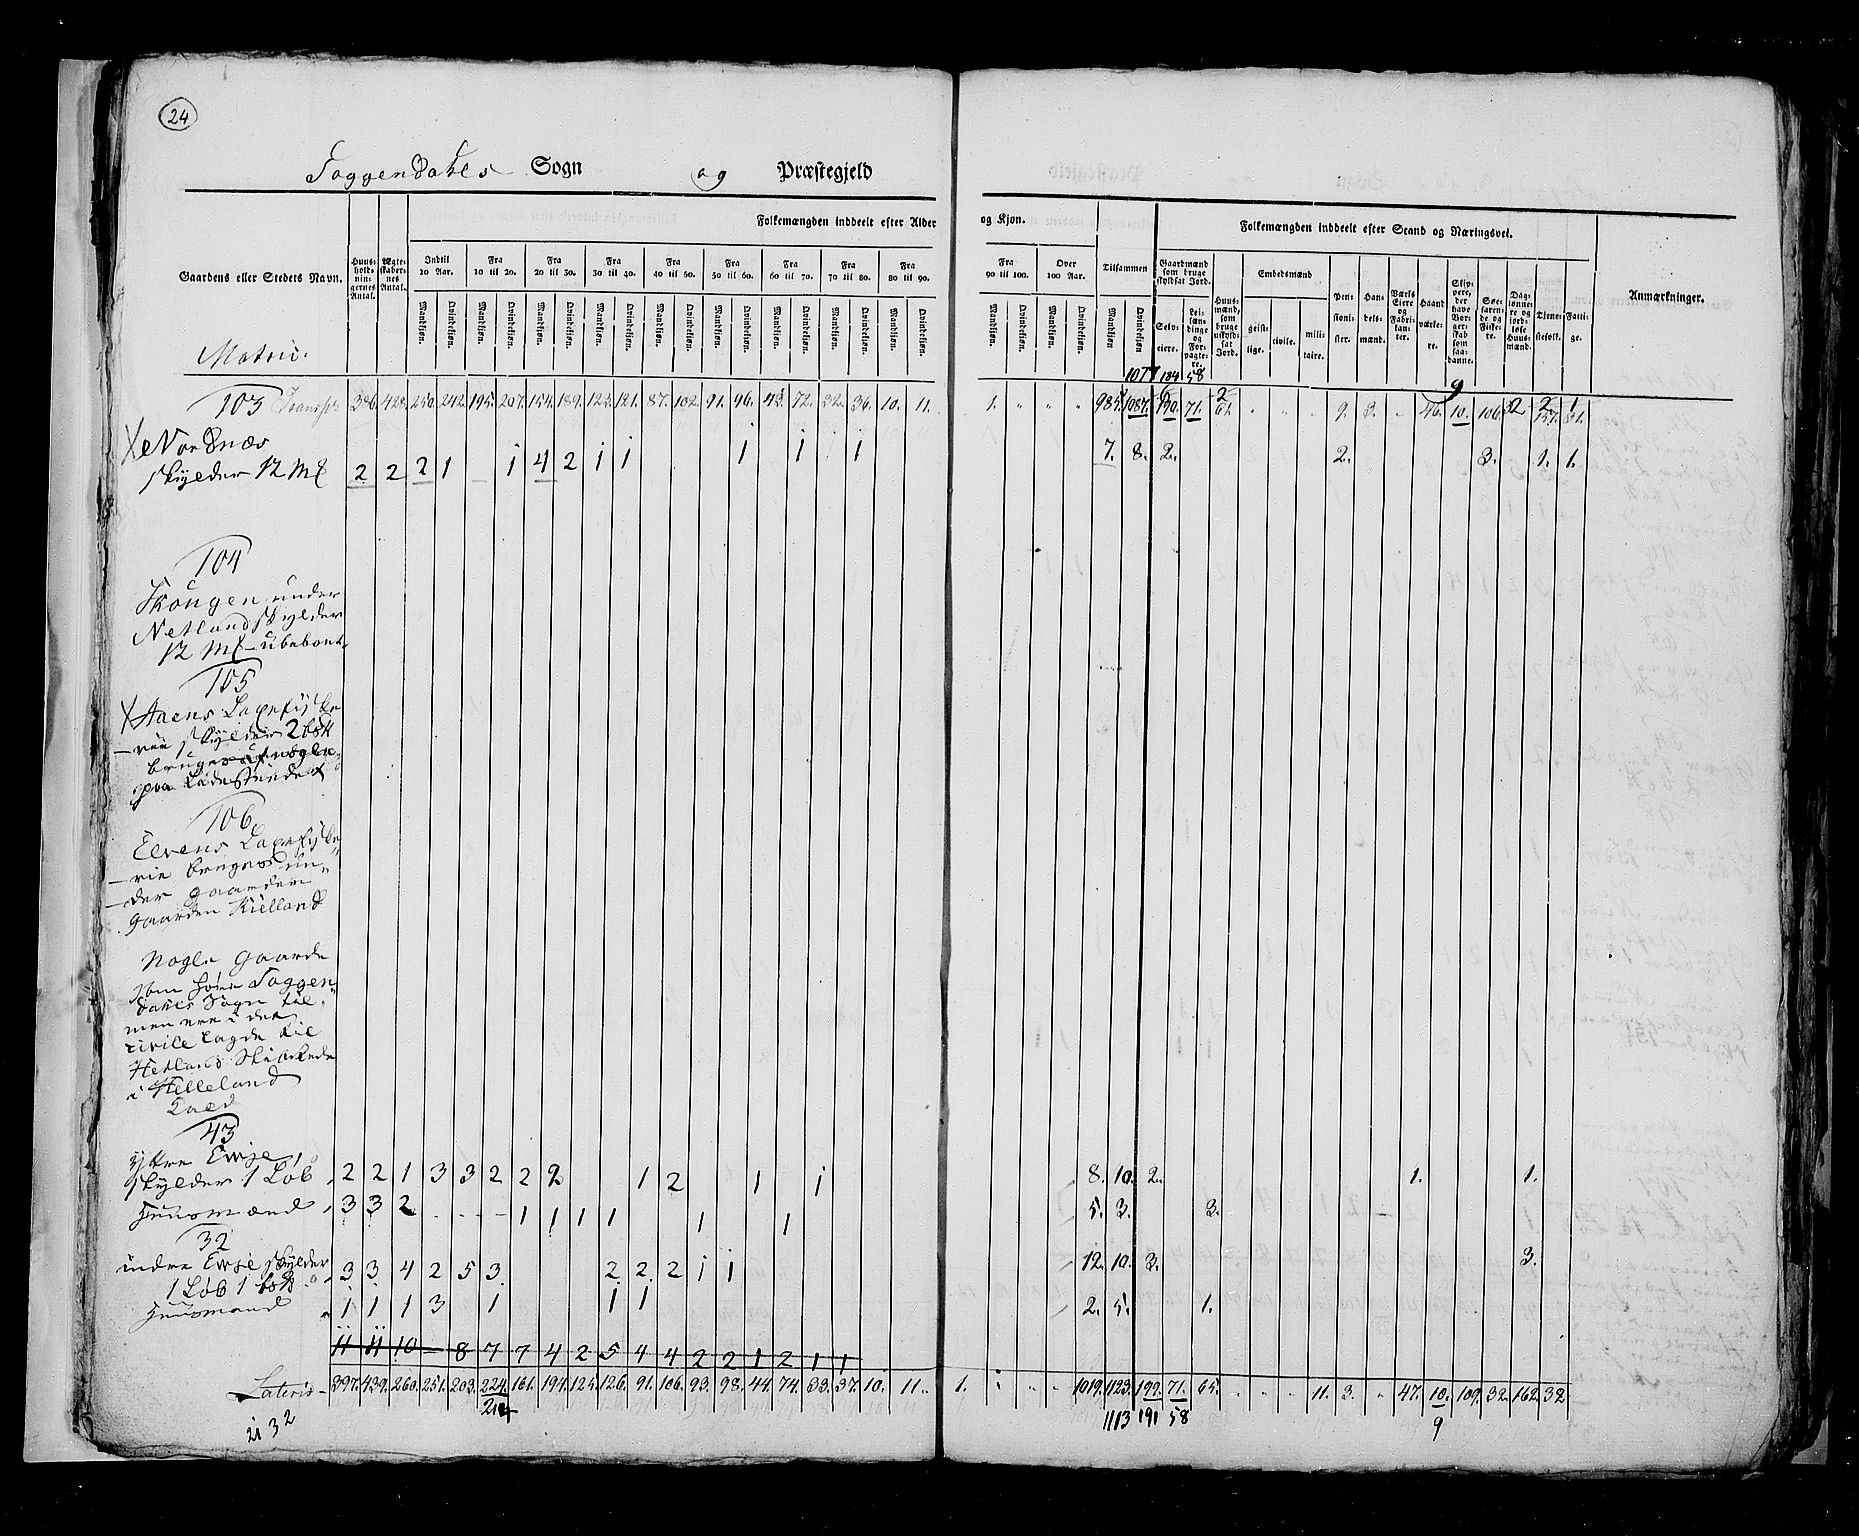 24
Soggendahls Sogn og Præstegjeld
Folkemængden inddeelt efter Alder og Kjøn.
Folkemængden inddeelt efter Stand og Næringsvei.
Gaardens eller Stedets Navn.
Huusholdningernes Antal.
Ægteskabernes Antal.
Indtil 10 Aar.
Fra 10 til 20.
Fra 20 til 30.
Fra 30 til 40.
Fra 40 til 50.
Fra 50 til 60.
Fra 60 til 70.
Fra 70 til 80.
Fra 80 til 90.
Fra 90 til 100.
Over 100 Aar.
Tilsammen
Mandkjøn. Qvindekjøn.
Gaardmænd som bruge skyldsat Jord.
Selveiere.
Leilændinge og Forpagtere.
Huusmænd, som bruge uskyldsat Jord.
Embedsmænd
geistlige. civile. militaire.
Pensionister.
Handelsmænd.
Værkseiere og Fabrikanter.
Haandværkere.
Skippere, der have Borgerskab som saadanne.
Søefarende og Fiskere.
Daglønnere og jordløse Huusmænd.
Tjenestefolk.
Fattige.
Anmærkninger.
Matric.
1077 184 58
103 Transp. 386. 428. 250. 242. 195. 207. 154. 189. 123. 121. 87. 102. 91. 96. 43. 72. 32. 36. 10. 11. 1. 985. 1087. 190. 71. 61. 9. 3. 46. 10. 106. 32 157. 31.
Nordnæs
skylder 12 Mk 2 2 2 1 1 4 2 1 1 1 1 1 7. 8. 2. 2. 3. 1. 1.
104
Skougen under
Netland skylder
12 Mk – ubeboet
105
Aaens Laxefiske
rie skylder 2 bsk
bruges af nogle
paa Ladestedet
106
Elvens Laxefiske
rie bruges un
der Gaarden
Gaarden Kielland
Nogle Gaarde
som høre Soggen
dahls Sogn til,
men ere i det
civile lagde til
Hetlands Skibrede
i Helleland
Gield
43
yttre Ewje
skylder 1 Løb 2 2 1 3 3 2 2 2 1 2 1 1 8. 10. 2. 1. 1.
Huusmænd 3 3 2 1 1 1 1 1 1 5. 3. 3.
32
indre Ewje skylder
1 Løb 1 bsk 3 3 4 2 5 3 2 2 2 1 1 12. 10. 3. 3.
Huusmænd 1 1 1 3 1 1 1 2. 5. 1.
11 11 10 – 8 7 7 4 2 5 4 4 2 2 1 2 1 1
Lateris 397. 439. 260. 251. 203. 224. 161. 194. 125. 126. 91. 106. 93. 98. 44. 74. 33. 37. 10. 11. 1. 1019. 1123. 199. 71. 65. 11. 3. 47. 10. 109. 32. 162. 32
214 1113 191 58 9
2132